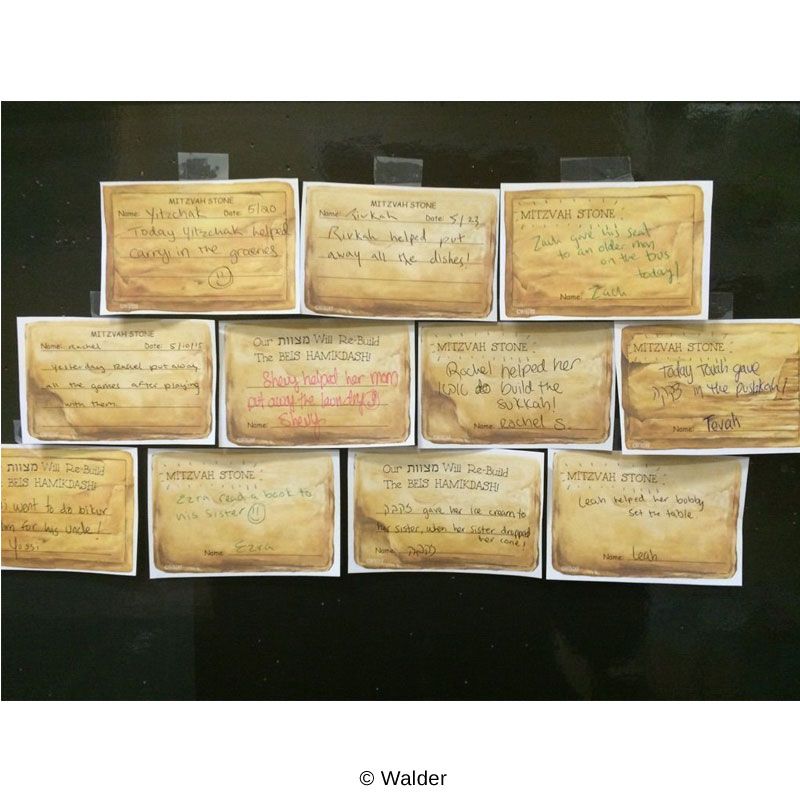 MITZVAH STONE
Name: Yitzchak Date: 5/20
Today Yitzchak helped
carry in the groceries
MITZVAH STONE
Name: Rivkah Date: 5/23
Rivkah helped put
away all the dishes!
MITZVAH STONE
Zach give his seat
to an older man
on the bus
today!
Name: Zach
MITZVAH STONE
Name: Rachel Date: 5/10/15
Yesterday Rachel put away
all the games after playing
with them.
Our מצוות Will Re-Build
The BEIS HAMIKDASH!
Shevy helped her mom
put away the laundry
Name: Shevy
MITZVAH STONE
Rachel helped her
build the
sukkah!
Name: Rachel S.
MITZVAH STONE
Today Tovah gave
צדקה in the pushkah!
Name: Tovah
מצוות Will Re-Build
The BEIS HAMIKDASH!
went to do bikur
for his uncle!
Yossi
MITZVAH STONE
Ezra read a book to
his sister
Name: Ezra
Our מצוות Will Re-Build
The BEIS HAMIKDASH!
gave her ice cream to
her sister, when her sister dropped
her cone!
Name:
MITZVAH STONE
Leah helped her bobby
set the table
Name: Leah
© Walder